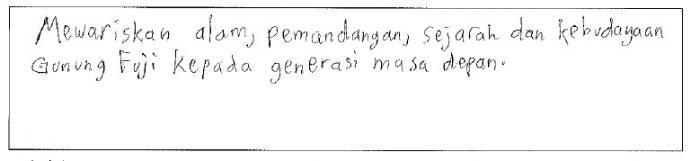 Mewariskan alam, pemandangan, sejarah dan kebudayaan
Gunung Fuji kepada generasi masa depan.